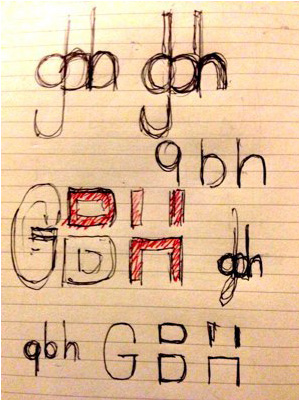 gbh gbh
gbh
GBH gbh
gbh GBH